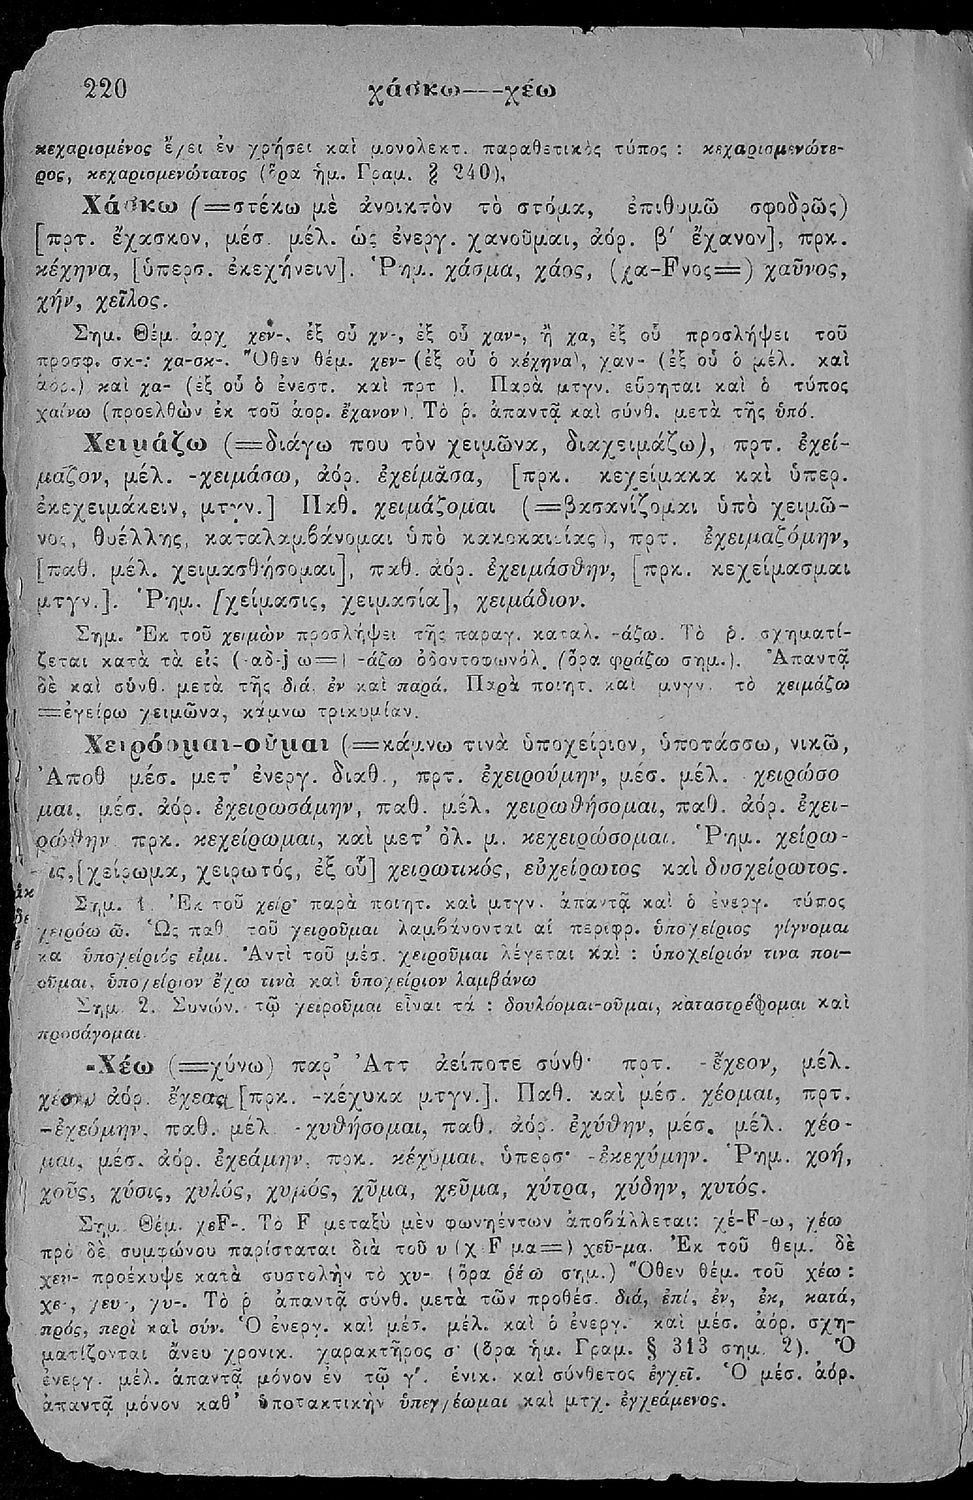 220 χάσκω——χέω
κεχαρισμένος ἔχει ἐν χρήσει καὶ μονολεκτ. παραθετικὸς τύπος : κεχαρισμενώτε-
ρος, κεχαρισμενώτατος (ὅρα ἡμ. Γραμ. § 240),
Χάσκω (=στέκω μὲ ἀνοικτὸν τὸ στόμα, ἐπιθυμῶ σφοδρῶς)
[πρτ. ἔχασκον, μέσ. μέλ. ὡς ἐνεργ. χανοῦμαι, ἀόρ. β' ἔχανον], πρκ.
κέχηνα, [ὑπερσ. ἐκεχήνειν]. Ῥημ. χάσμα, χάος, (χα-Fνος=) χαῦνος,
χήν, χεῖλος.
Σημ. Θέμ. ἀρχ χεν-, ἐξ οὗ χν-, ἐξ οὗ χαν-, ἢ χα, ἐξ οὗ προσλήψει τοῦ
προσφ. σκ-: χα-σκ-. Ὅθεν θέμ. χεν- (ἐξ οὗ ὁ κέχηνα), χαν- (ἐξ οὗ ὁ μέλ. καὶ
ἀόρ.) καὶ χα- (ἐξ οὗ ὁ ἐνεστ. καὶ πρτ ). Παρὰ μτγν. εὕρηται καὶ ὁ τύπος
χαίνω (προελθὼν ἐκ τοῦ ἀορ. ἔχανον). Τὸ ῥ. ἀπαντᾷ καὶ σύνθ. μετὰ τῆς ὑπό.
Χειμάζω (=διάγω που τὸν χειμῶνα, διαχειμάζω), πρτ. ἐχεί-
μαζον, μέλ. -χειμάσω, ἀόρ. ἐχείμασα, [πρκ. κεχείμακα καὶ ὑπερ.
ἐκεχειμάκειν, μτγν.] Παθ. χειμάζομαι (=βασανίζομαι ὑπὸ χειμῶ-
νος, θυέλλης, καταλαμβάνομαι ὑπὸ κακοκαιρίας), πρτ. ἐχειμαζόμην,
[παθ. μέλ. χειμασθήσομαι], παθ. ἀόρ. ἐχειμάσθην, [πρκ. κεχείμασμαι
μτγν.]. Ῥημ. [χείμασις, χειμασία], χειμάδιον.
Σημ. Ἐκ τοῦ χειμὼν προσλήψει τῆς παραγ. καταλ. -άζω. Τὸ ῥ. σχηματί-
ζεται κατὰ τὰ εἰς (-αδ-j ω=) -άζω ὀδοντοφωνόλ. (ὅρα φράζω σημ.). Ἀπαντᾷ
δὲ καὶ σύνθ. μετὰ τῆς διά, ἐν καὶ παρά. Παρὰ ποιητ. καὶ μνγν. τὸ χειμάζω
=ἐγείρω χειμῶνα, κάμνω τρικυμίαν.
Χειρόομαι-οῦμαι (=κάμνω τινὰ ὑποχείριον, ὑποτάσσω, νικῶ,
Ἀποθ μέσ. μετ' ἐνεργ. διαθ., πρτ. ἐχειρούμην, μέσ. μέλ. χειρώσο
μαι, μέσ. ἀόρ. ἐχειρωσάμην, παθ. μέλ. χειρωθήσομαι, παθ. ἀόρ. ἐχει-
ρώθην πρκ. κεχείρωμαι, καὶ μετ' ὀλ. μ. κεχειρώσομαι. Ῥημ. χείρω-
ις,[χείρωμα, χειρωτός, ἐξ οὗ] χειρωτικός, εὐχείρωτος καὶ δυσχείρωτος.
Σημ. 1. Ἐκ τοῦ χείρ· παρὰ ποιητ. καὶ μτγν. ἀπαντᾷ καὶ ὁ ἐνεργ. τύπος
χειρόω ῶ. Ὡς παθ. τοῦ χειροῦμαι λαμβάνονται αἱ περιφρ. ὑποχείριος γίγνομαι
κα ὑποχείριός εἰμι. Ἀντὶ τοῦ μέσ. χειροῦμαι λέγεται καὶ : ὑποχείριόν τινα ποι-
οῦμαι, ὑποχείριον ἔχω τινὰ καὶ ὑποχείριον λαμβάνω
Σημ. 2. Συνών. τῷ χειροῦμαι εἶναι τά : δουλόομαι-οῦμαι, καταστρέφομαι καὶ
προσάγομαι.
-Χέω (=χύνω) παρ' Ἀττ ἀείποτε σύνθ· πρτ. -ἔχεον, μέλ.
χέω ἀόρ. ἔχεα [πρκ. -κέχυκα μτγν.]. Παθ. καὶ μέσ. χέομαι, πρτ.
-ἐχεόμην, παθ. μέλ. -χυθήσομαι, παθ. ἀόρ. ἐχύθην, μέσ. μέλ. χέο-
μαι, μέσ. ἀόρ. ἐχεάμην, πρκ. κέχυμαι, ὑπερσ· -ἐκεχύμην. Ῥημ. χοή,
χοῦς, χύσις, χυλός, χυμός, χῦμα, χεῦμα, χύτρα, χύδην, χυτός.
Σημ. Θέμ. χεF-. Τὸ F μεταξὺ μὲν φωνηέντων ἀποβάλλεται: χέ-F-ω, χέω
πρὸ δὲ συμφώνου παρίσταται διὰ τοῦ υ (χ F μα=) χεῦ-μα. Ἐκ τοῦ θεμ. δὲ
χευ- προέκυψε κατὰ συστολὴν τὸ χυ- (ὅρα ῥέω σημ.) Ὅθεν θέμ. τοῦ χέω :
χε-, χευ-, χυ-. Τὸ ῥ ἀπαντᾷ σύνθ. μετὰ τῶν προθέσ. διά, ἐπί, ἐν, ἐκ, κατά,
πρός, περὶ καὶ σύν. Ὁ ἐνεργ. καὶ μέσ. μέλ. καὶ ὁ ἐνεργ. καὶ μέσ. ἀόρ. σχη-
ματίζονται ἄνευ χρονικ. χαρακτῆρος σ· (ὅρα ἡμ. Γραμ. § 313 σημ. 2). Ὁ
ἐνεργ. μέλ. ἀπαντᾷ μόνον ἐν τῷ γ'. ἑνικ. καὶ σύνθετος ἐγχεῖ. Ὁ μέσ. ἀόρ.
ἀπαντᾷ μόνον καθ' ὑποτακτικὴν ὑπεγχέωμαι καὶ μτχ. ἐγχεάμενος.